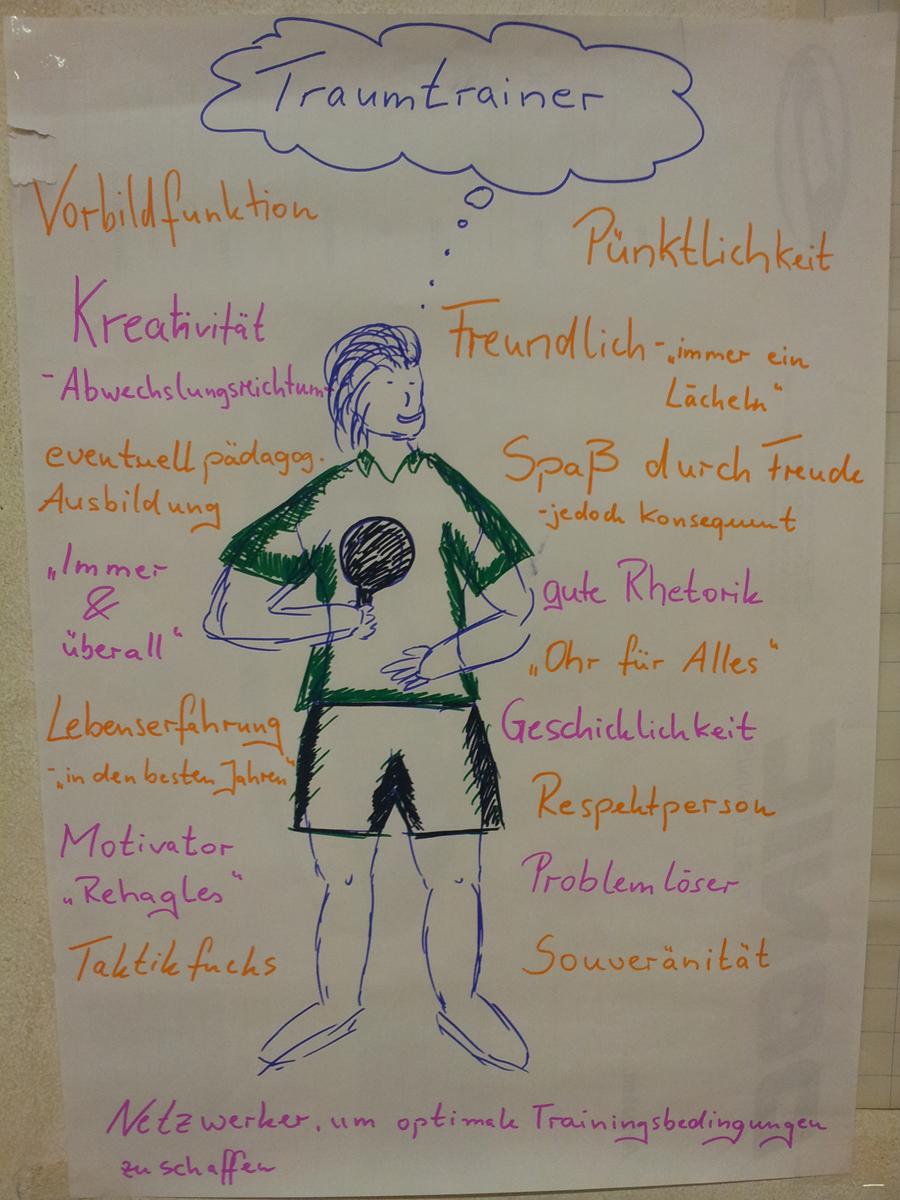 Traumtrainer
Vorbildfunktion
Kreativität
- Abwechslungsreichtum
eventuell pädagog.
Ausbildung
„Immer
&
überall"
Lebenserfahrung
- „in den besten Jahren"
Motivator
„Rehagles"
Taktikfuchs
Pünktlichkeit
Freundlich - „immer ein
Lächeln"
Spaß durch Freude
- jedoch konsequent
gute Rhetorik
„Ohr für Alles"
Geschicklichkeit
Respektperson
Problemlöser
Souveränität
Netzwerker, um optimale Trainingsbedingungen
zu schaffen